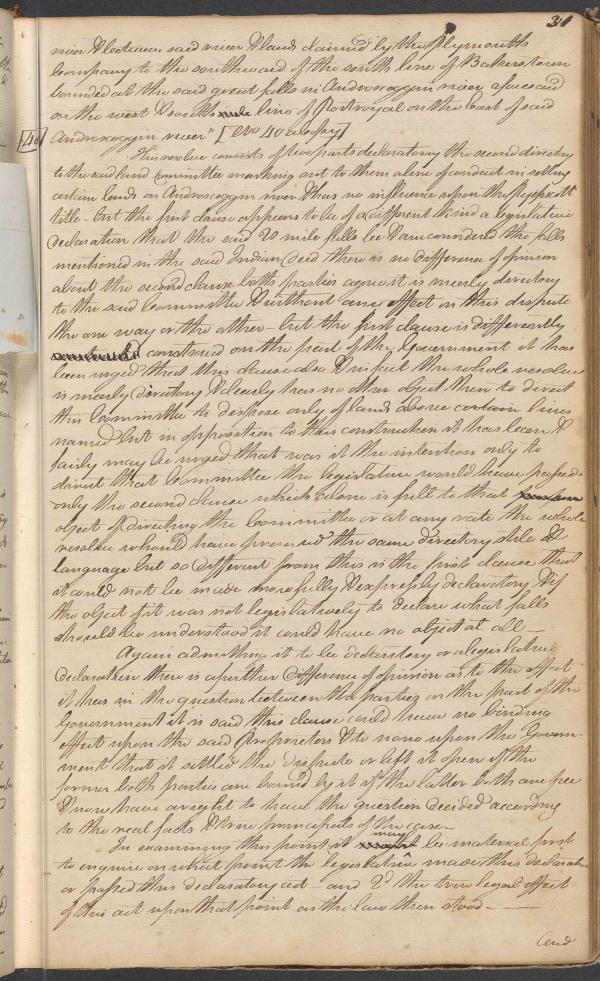 31
river & between said river & lands claimed by the Plymouth
Company to the southward of the south line of Bakerstown
bounded at the said great falls in Androscoggin river aforesaid
on the west & south line of Portroyal on the East of said
[40] Androscoggin river" [No 40 a copy]
This resolve consists of two parts declaratory the second directory
to the said land Committee marking out to them a line of conduct in selling
certain lands on Androscoggin river & has no influence upon the Pejepscott
title - but the first clause appears to be of a different kind a legislative
declaration that the said 20 mile falls be & are considered the falls
mentioned in the said Indian Deed there is no difference of opinion
about the second clause both parties agree it is meerly directory
to the said Committee & without any effect on this dispute
the one way or the other - but the first clause is differently
construed on the part of the Government it has
been urged that this clause also & in fact the whole resolve
is meerly directory & clearly has no other object then to direct
this Committee to dispose only of lands above certain lines
named but in opposition to this construction it has been &
fairly may be urged that was it the intention only to
direct that Committee the legislature would have passed
only the second clause which alone is full to that
object of directing the Committee or at any rate the whole
resolve whould have preserved the same directory stile &
language but so different from this is the first clause that
it could not be made more fully & expressly declaratory & if
the object of it was not legislatively to declare what falls
should be understood it could have no object at all
Again admitting it to be declaratory or a legislative
declaration there is a further difference of opinion as to the effect
it has in the question between the parties on the part of the
Government it is said this clause could have no binding
effect upon the said Proprietors & to none upon the Govern-
ment that it settled the dispute or left it open if the
former both parties are bound by it if the latter both are free
& now have a right to have the question decided according
to the real facts & true principals of the case -
In examining this point it may be material first
to enquire on what point the legislature made this declaration
or passed this declaratory act - and 2d the true legal effect
of this act upon that point as the law then stood -
And